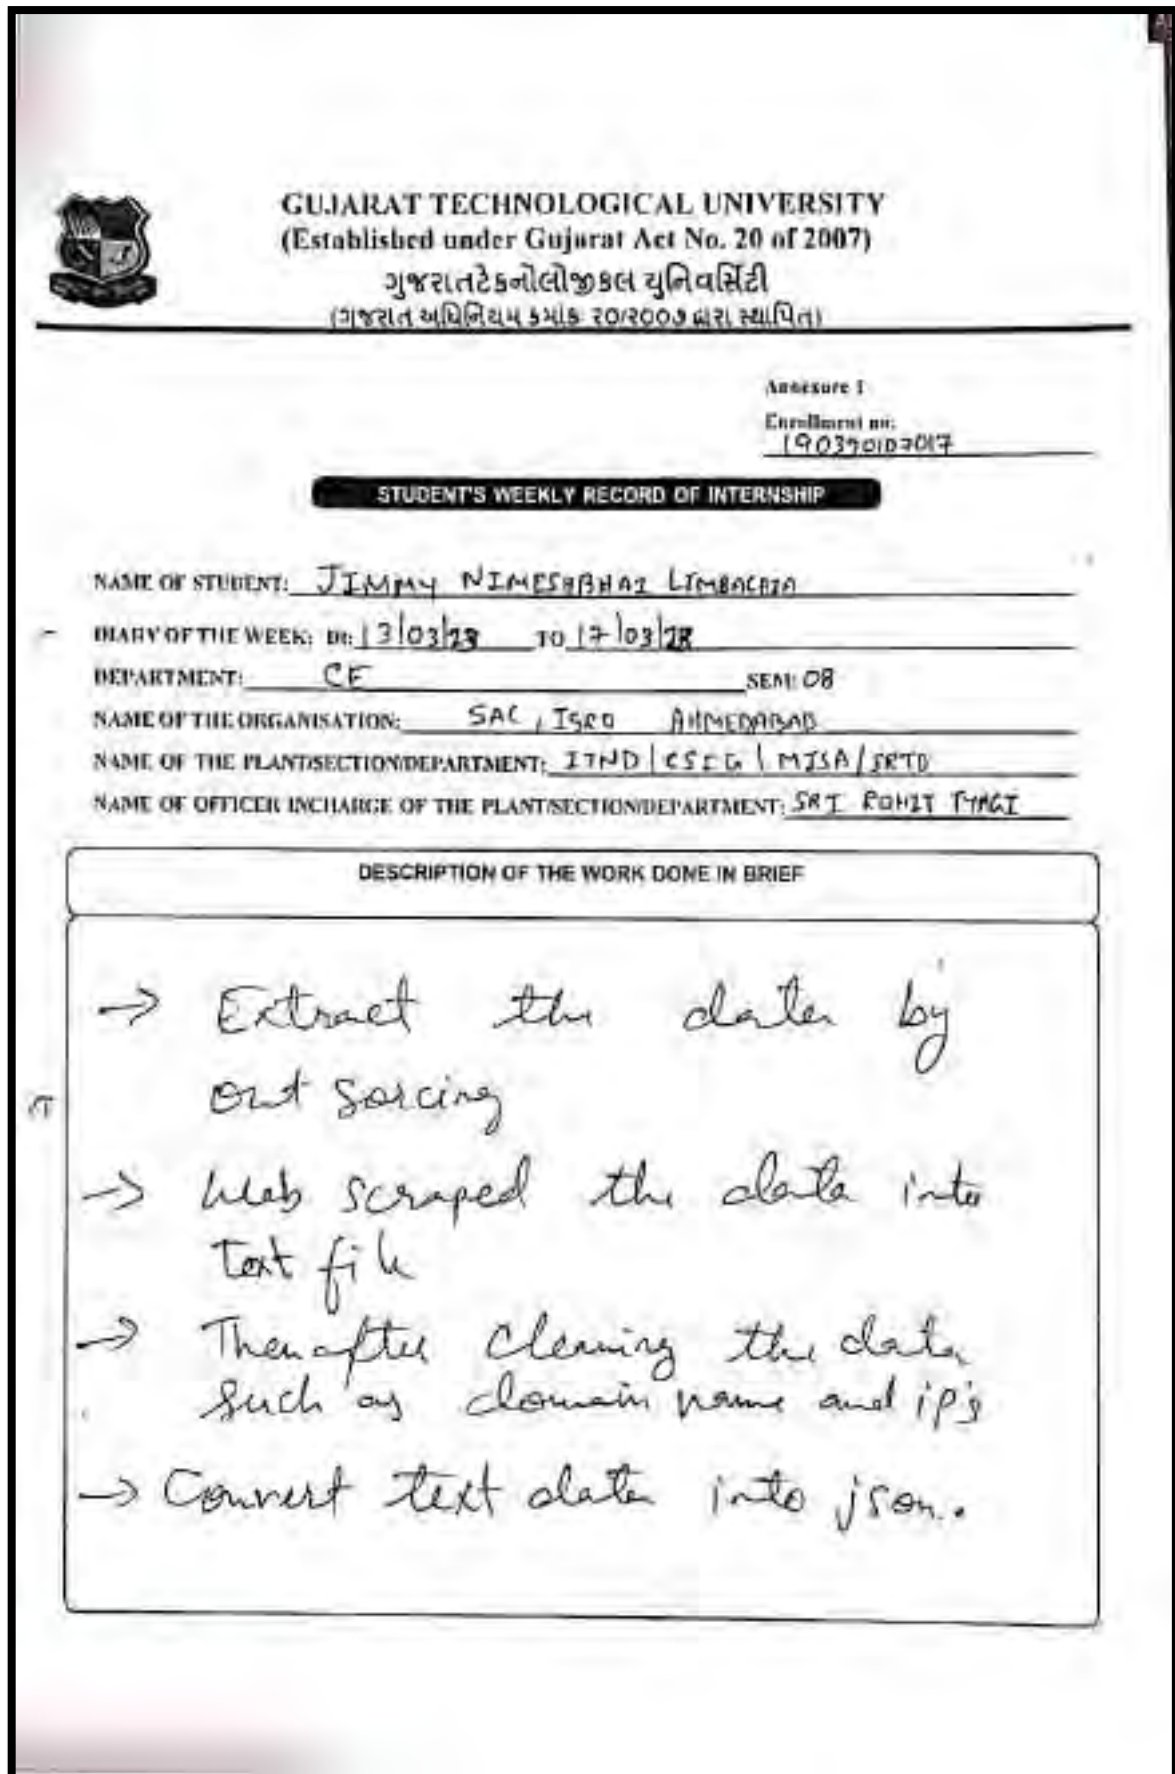 GUJARAT TECHNOLOGICAL UNIVERSITY
(Established under Gujarat Act No. 20 of 2007)
ગુજરાતટેકનોલોજીકલ યુનિવર્સિટી
(ગુજરાત અધિનિયમ ક્રમાંક ૨૦/૨૦૦૭ દ્વારા સ્થાપિત)
Annexure 1
Enrollment no:
190390107017
STUDENT'S WEEKLY RECORD OF INTERNSHIP
NAME OF STUDENT: JIMMY NIMESHBHAI LIMBACHIA
DIARY OF THE WEEK: Dt: 13/03/23 TO 17/03/23
DEPARTMENT: CE SEM: 08
NAME OF THE ORGANISATION: SAC, ISRO AHMEDABAD
NAME OF THE PLANT/SECTION/DEPARTMENT: ITND / CSIG / MISA / SRTD
NAME OF OFFICER INCHARGE OF THE PLANT/SECTION/DEPARTMENT: SRI ROHIT TYAGI
DESCRIPTION OF THE WORK DONE IN BRIEF
→ Extract the data by
out sorcing
→ Web scraped the data into
text file
→ Then after cleaning the data
such as domain name and ip's
→ Convert text data into json.